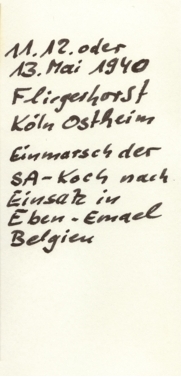 11. 12. oder
13. Mai 1940
Fliegerhorst
Köln Ostheim
Einmarsch der
SA-Koch nach
Einsatz in
Eben-Emael
Belgien